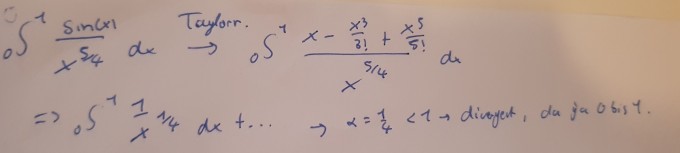 ₀∫¹ sin(x) / x^5/4 dx Taylorr. → ₀∫¹ (x - x³/3! + x⁵/5!) / x^5/4 dx
=> ₀∫¹ 1/x^1/4 dx + ... → α = 1/4 < 1 → divergent, da ja 0 bis 1.